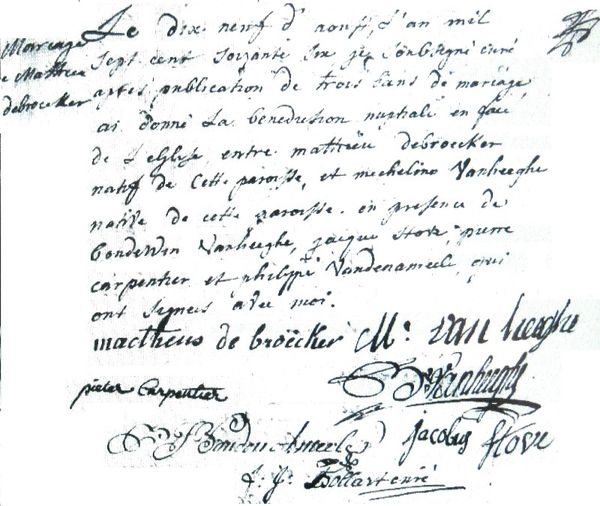 Mariage
e Mattieu
debroecker
Le dix neuf d'aoust, l'an mil
sept cent soixante six je soubsigné curé
apres publication de trois bans de mariage
ai donné la benediction nuptiale en face
de l'eglise entre mattieu debroecker
natif de cette paroisse, et mecheline Vanheeghe
native de cette paroisse. en presence de
bondewin Vanheeghe, jacque stove, pierre
carpentier et philippe Vandenameele, qui
ont signes avec moi.
mattheus de broëcker M: van heeghe
B Vanheeghe
pieter Carpentier
jacobus stove
J: J: curé